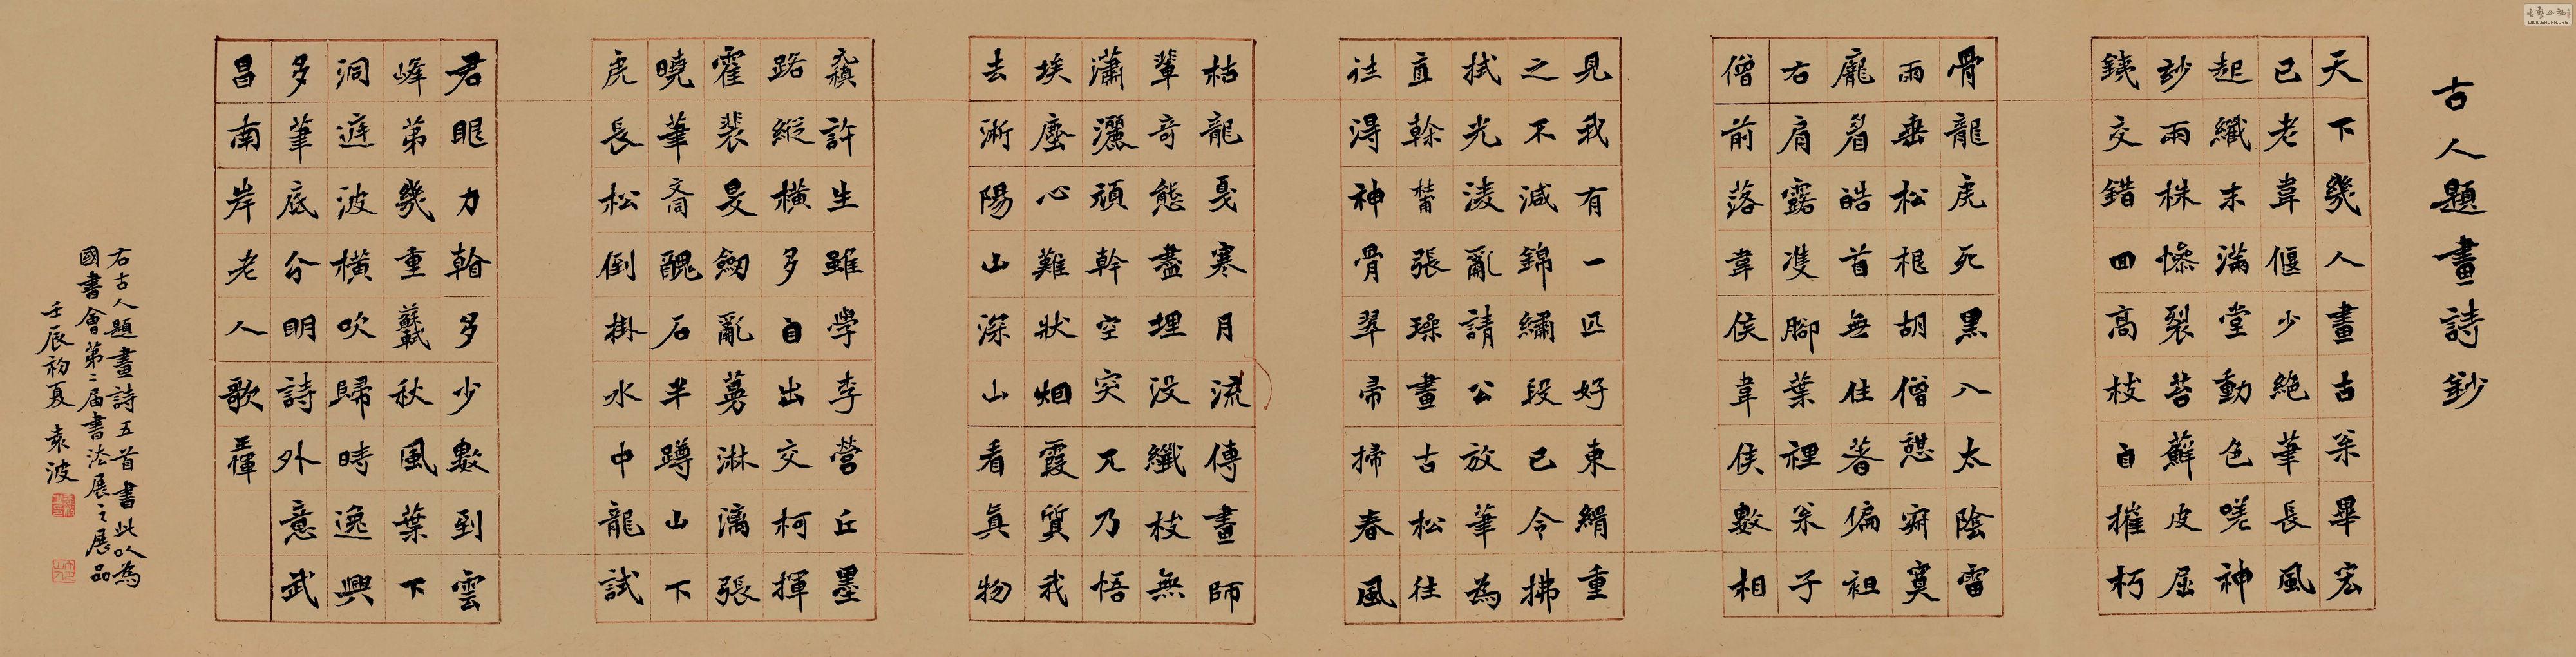 古人題畫詩鈔
天下幾人畫古枀畢宏
已老韋偃少絕筆長風
起纖末滿堂動色嗟神
玅兩株慘裂苔蘚皮屈
鐵交錯回高枝白摧朽
骨龍虎死黑入太陰雷
雨垂松根胡僧憩寂寞
龐眉皓首無住著偏袒
右肩露雙腳葉裡枀子
僧前落韋侯韋侯數相
見我有一匹好東絹重
之不減錦繡段已令拂
拭光淩亂請公放筆為
直幹杜甫張璪畫古松往
往得神骨翠帚掃春風
枯龍戛寒月流傳畫師
輩奇態盡埋沒纖枝無
瀟灑頑幹空突兀乃悟
埃塵心難狀烟霞質我
去淅陽山深山看真物
元稹許生雖學李營丘墨
路縱橫多自出交柯揮
霍裴旻劒亂蔓淋漓張
曉筆醜石半蹲山下
虎長松倒掛水中龍試
君眼力翰多少數到雲
峰第幾重蘇軾秋風葉下
洞庭波橫吹歸時逸興
多筆底分明詩外意武
昌南岸老人歌王惲
右古人題畫詩五首書此以為
國書會第二屆書法展之展品
壬辰初夏 袁波
WWW.SHUFR.ORG